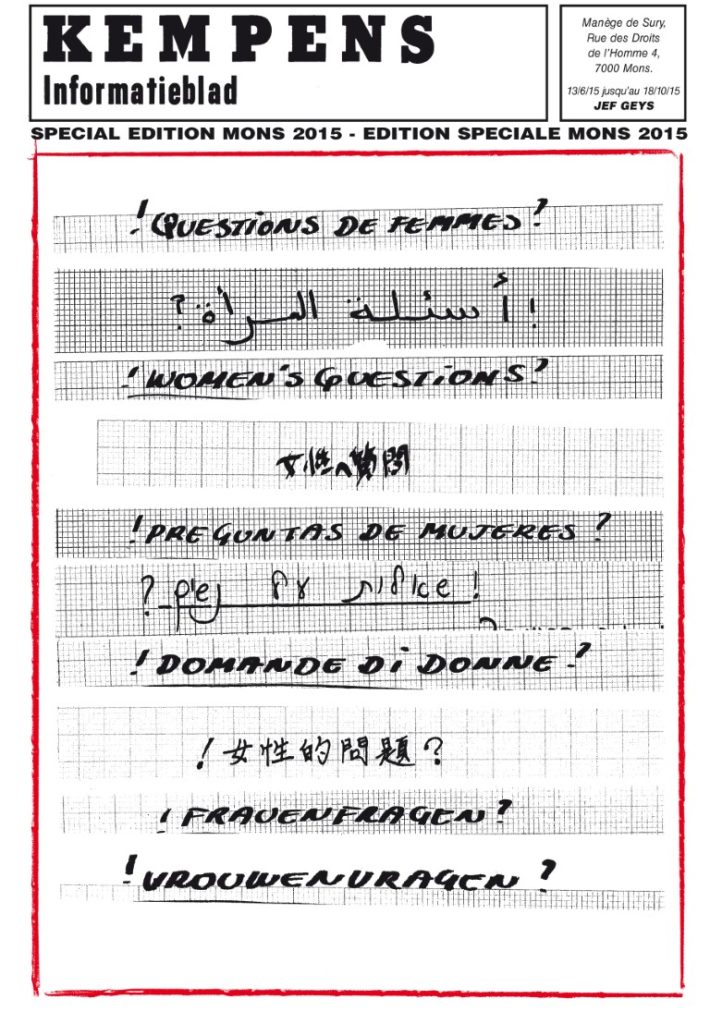 KEMPENS
Informatieblad
Manège de Sury,
Rue des Droits
de l'Homme 4,
7000 Mons.
13/6/15 jusqu'au 18/10/15
JEF GEYS
SPECIAL EDITION MONS 2015 - EDITION SPECIALE MONS 2015
! QUESTIONS DE FEMMES ?
! أسئلة المرأة ?
! WOMEN'S QUESTIONS ?
女性へ質問
! PREGUNTAS DE MUJERES ?
! שאלות על נשים ?
! DOMANDE DI DONNE ?
! 女性的問題 ?
! FRAUENFRAGEN ?
! VROUWENVRAGEN ?